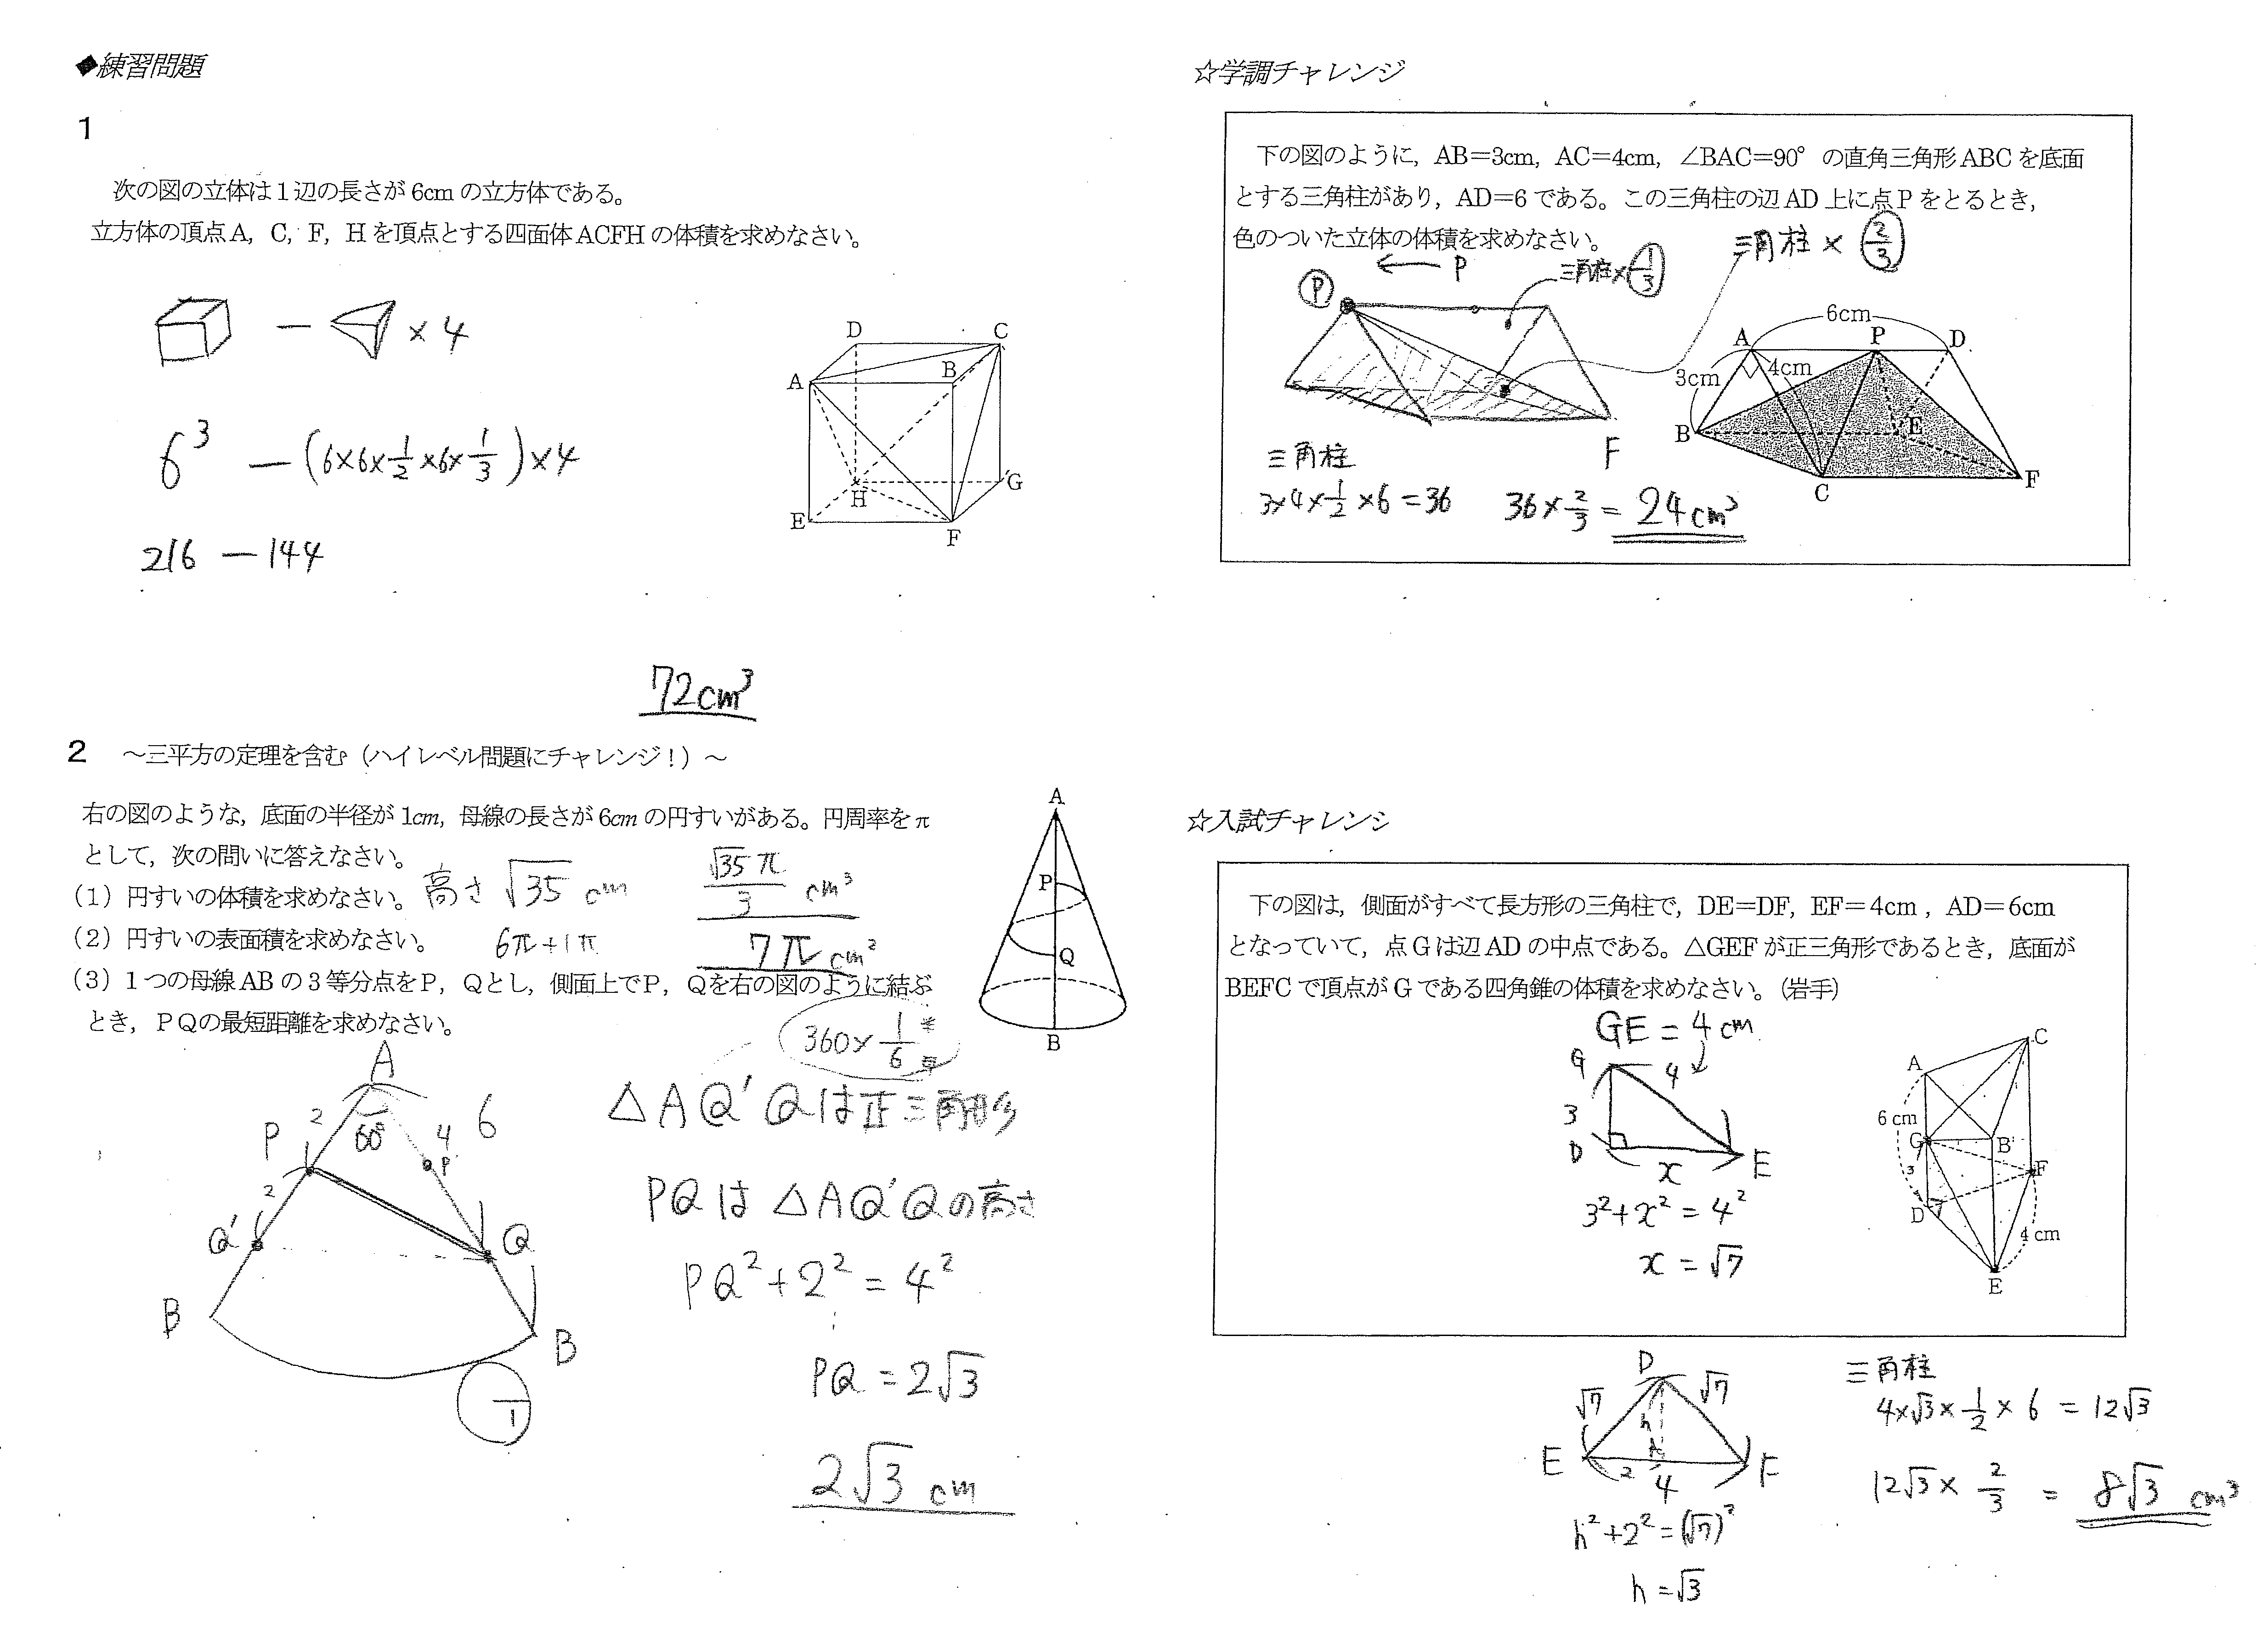 ◆練習問題
1
次の図の立体は1辺の長さが6cmの立方体である。
立方体の頂点A, C, F, Hを頂点とする四面体ACFHの体積を求めなさい。
− ×4
6³ −(6×6×1/2×6×1/3)×4
216 − 144
72cm³
D C
A B
H G
E F
2 ～三平方の定理を含む（ハイレベル問題にチャレンジ！）～
右の図のような, 底面の半径が1cm, 母線の長さが6cmの円すいがある。円周率をπ
として, 次の問いに答えなさい。
(1) 円すいの体積を求めなさい。 高さ √35 cm √35π/3 cm³
(2) 円すいの表面積を求めなさい。 6π+1π 7πcm²
(3) 1つの母線ABの3等分点をP, Qとし, 側面上でP, Qを右の図のように結ぶ
とき, PQの最短距離を求めなさい。
A
P
Q
B
360×1/6 半 母
A
2 60° 4 6
P P
2
Q' Q
B B
1
△AQ'Qは正三角形
PQは△AQ'Qの高さ
PQ²+2²=4²
PQ=2√3
2√3 cm
☆学調チャレンジ
下の図のように, AB=3cm, AC=4cm, ∠BAC=90° の直角三角形ABCを底面
とする三角柱があり, AD=6である。この三角柱の辺AD上に点Pをとるとき,
色のついた立体の体積を求めなさい。
三角柱×2/3
← P 三角柱×1/3
P
F
6cm
A P D
3cm 4cm
B E
C F
三角柱
3×4×1/2×6=36 36×2/3=24cm³
☆入試チャレンジ
下の図は, 側面がすべて長方形の三角柱で, DE=DF, EF=4cm, AD=6cm
となっていて, 点Gは辺ADの中点である。△GEFが正三角形であるとき, 底面が
BEFCで頂点がGである四角錐の体積を求めなさい。(岩手)
GE=4cm
G 4
3
D x E
3²+x²=4²
x=√7
C
A
6cm
G B
3 F
D
4cm
E
D
√7 √7
h
E 2 4 F
h²+2²=(√7)²
h=√3
三角柱
4×√3×1/2×6=12√3
12√3×2/3=8√3 cm³